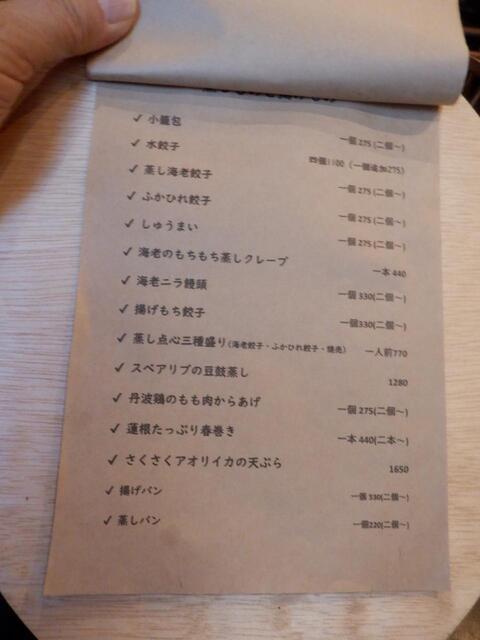 ✓ 小籠包 一個275(二個～)
✓ 水餃子 四個1100（一個追加275）
✓ 蒸し海老餃子 一個275(二個～)
✓ ふかひれ餃子 一個275(二個～)
✓ しゅうまい 一個275(二個～)
✓ 海老のもちもち蒸しクレープ 一本440
✓ 海老ニラ饅頭 一個330(二個～)
✓ 揚げもち餃子 一個330(二個～)
✓ 蒸し点心三種盛り(海老餃子・ふかひれ餃子・焼売) 一人前770
✓ スペアリブの豆鼓蒸し 1280
✓ 丹波鶏のもも肉からあげ 一個275(二個～)
✓ 蓮根たっぷり春巻き 一本440(二本～)
✓ さくさくアオリイカの天ぷら 1650
✓ 揚げパン 一個330(二個～)
✓ 蒸しパン 一個220(二個～)